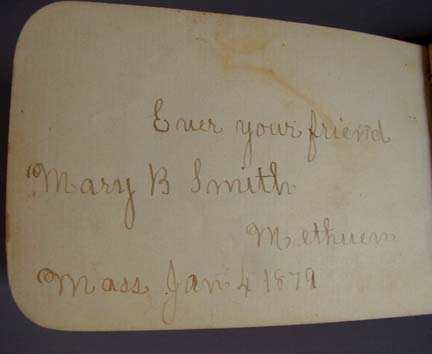 Ever your friend
Mary B Smith
Methuen
Mass Jan 4 1879